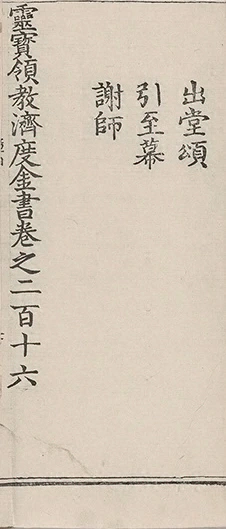 出堂頌
引至幕
謝師
靈寳領教濟度金書卷之二百十六